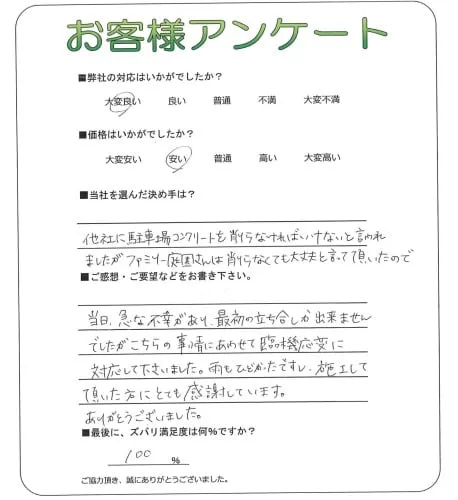 お客様アンケート
■弊社の対応はいかがでしたか？
大変良い 良い 普通 不満 大変不満
■価格はいかがでしたか？
大変安い 安い 普通 高い 大変高い
■当社を選んだ決め手は？
他社に駐車場コンクリートを削らなければいけないと言われ
ましたがファミリー庭園さんは削らなくても大丈夫と言って頂いたので
■ご感想・ご要望などをお書き下さい。
当日、急な不幸があり、最初の立ち合いしか出来ません
でしたがこちらの事情にあわせて臨機応変に
対応して下さいました。雨もひどかったですし、施工して
頂いた方にとても感謝しています。
ありがとうございました。
■最後に、ズバリ満足度は何％ですか？
100 ％
ご協力頂き、誠にありがとうございました。